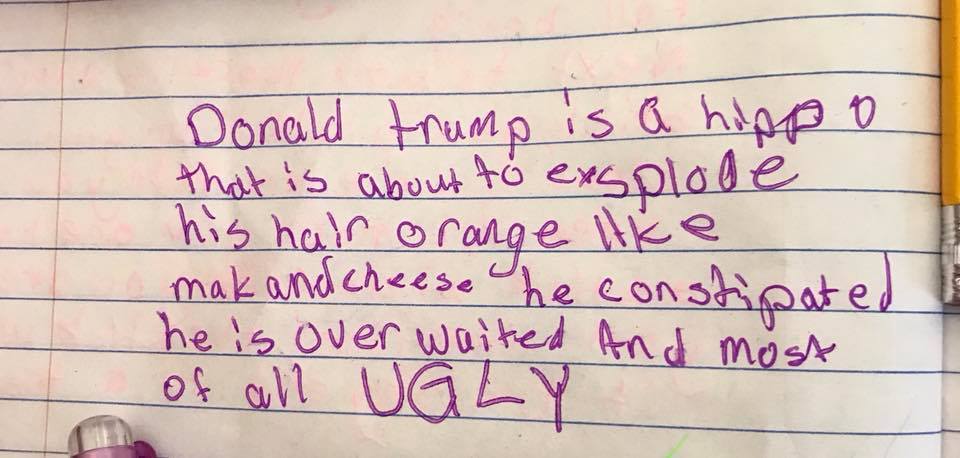 Donald trump is a hippo
that is about to exsplode
his hair orange like
mak and cheese he constipated
he is over waited And most
of all UGLY